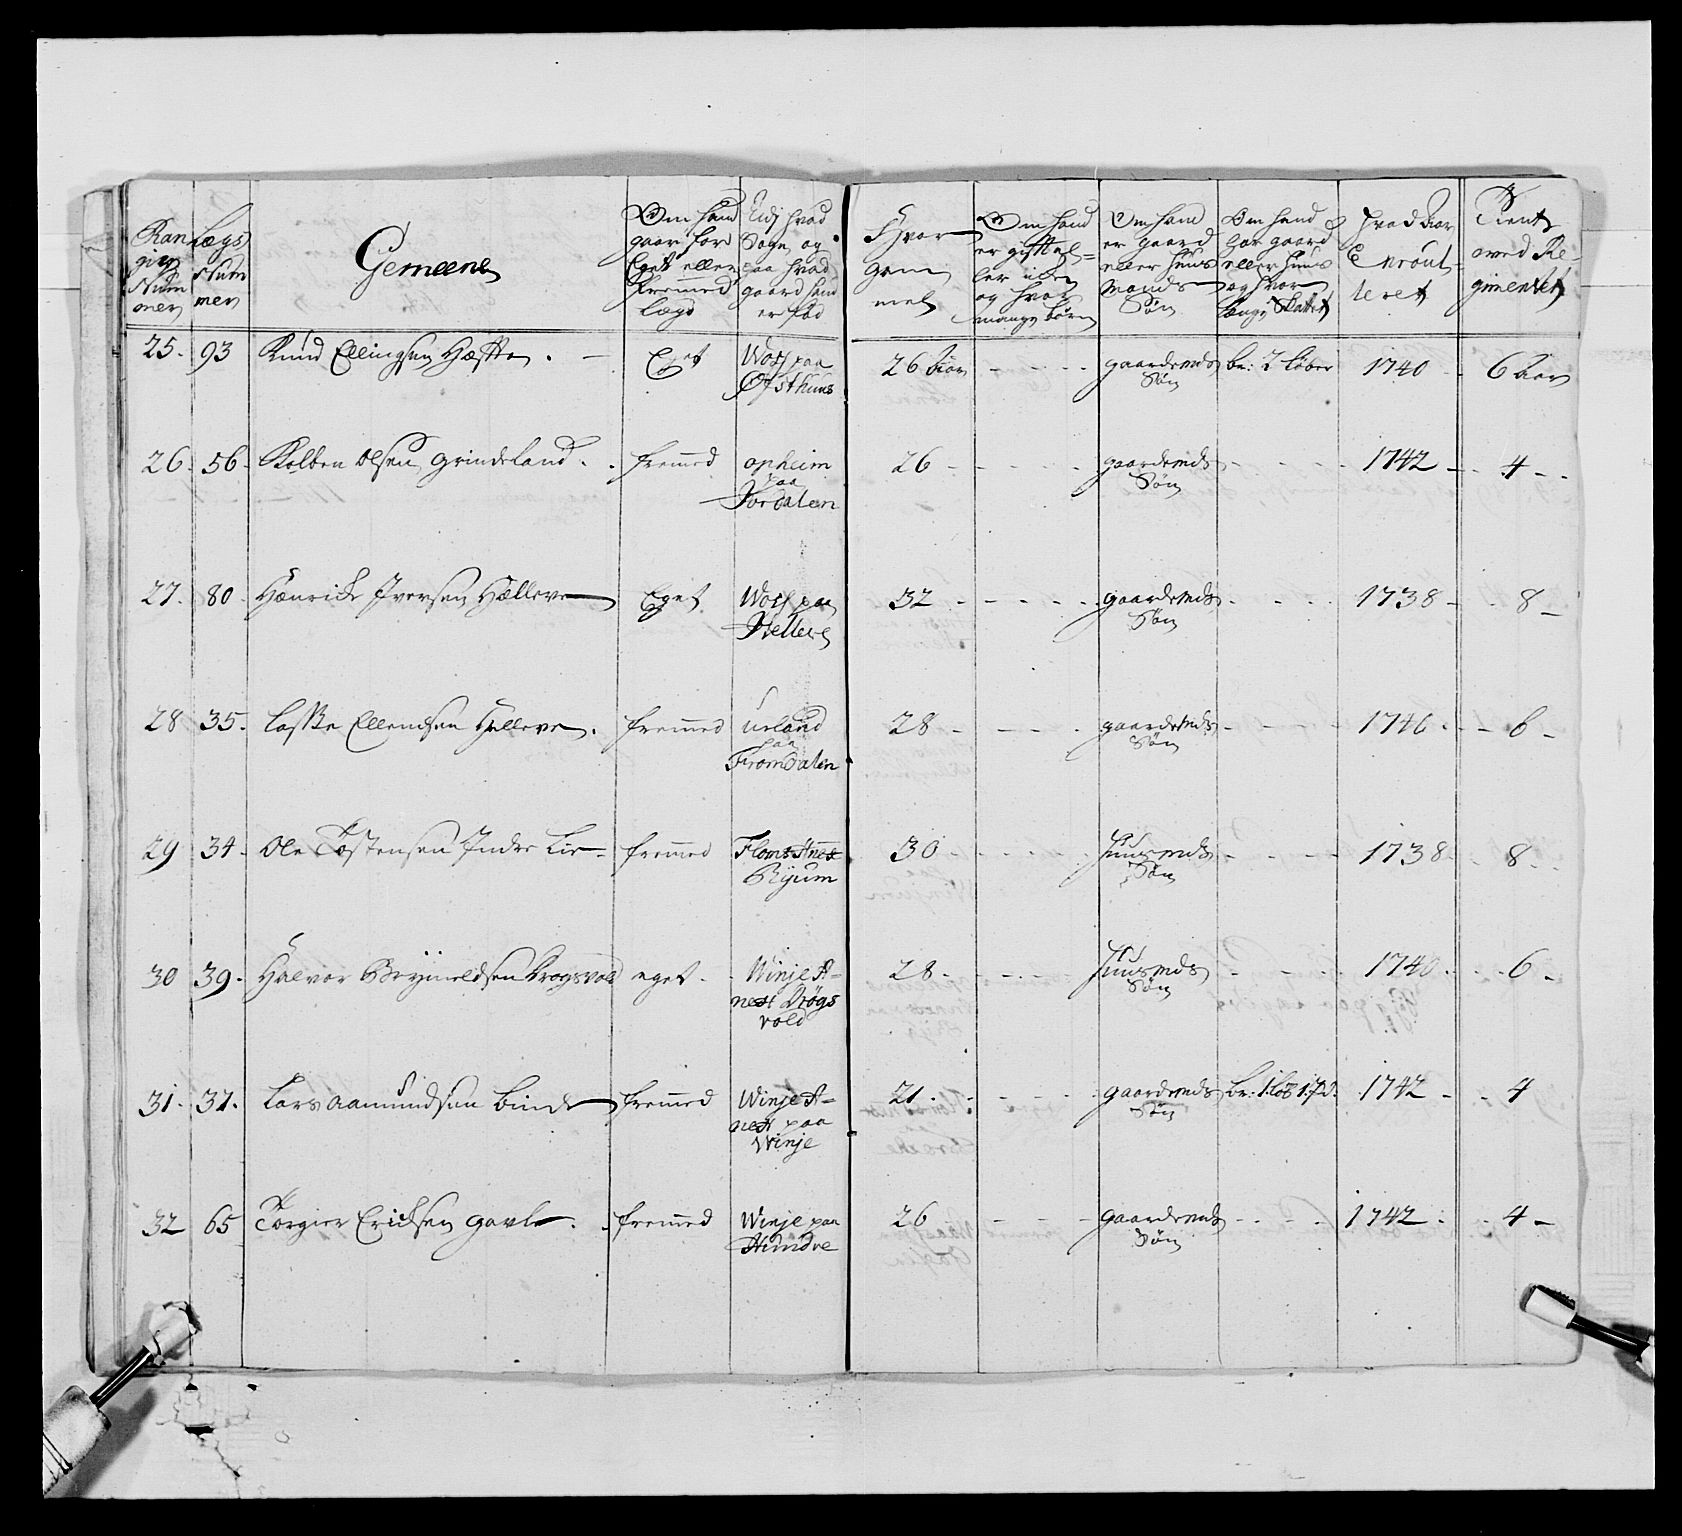 Rangier Nummer | Lægs Nummer | Gemeene | Om hand gaar for Eget eller fremmed lægd | Udj hvad Sogn og paa hvad gaard hand er fød | Hvor gammel | Om hand er gift eller ey og hvor mange børn | Om hand er gaard eller huus Mands Søn | Om hand har gaard eller huus og hvor længe Skattet | Hvad Aar Enroulleret | Tient med Regimentet
25. 93 Knud Ellingsen Hæfte . — Eget Woss paa Østhuus 26 Aar - - - - gaardmds Søn be: 2 løber 1740 - 6 Aar
26. 56. Kolben Olsen grindeland . . fremed opheim paa Jordalen 26 - - - - - gaardmds Søn - - - - 1742 - - 4 - .
27. 80. Henrick Iversen Helleve Eget Woss paa Helleve 32 - - - - . gaardmds Søn - - - . 1738 - . 8 -
28 35. Lasse Ellendsen Helleve . fremmed urland paa Fromdalen 28 - - - - . gaardmds Søn - - - - 1746 - - 6 -
29 34. Ole Tostensen Indre Lie - fremmed Floms Annex Ryum 30 - - - - - Huusmds Søn - - - - 1738 - - 8 -
30 39. Halvor Bryneldsen Drogsvold eget . Winje Annex Drøgsvold 28. - - - - Huusmds Søn - - - - 1740 . - . 6 -
31. 37. Lars Aamundsen Binde fremmed Winje Annex paa Winje 21. - - - - gaardmds Søn be: 1 løb 1742 - - 4
32 65 Torgier Ericksen gavle . . fremmed Winje paa Himdre 26 - - - - gaardmds Søn - - - . 1742 . - 4 -